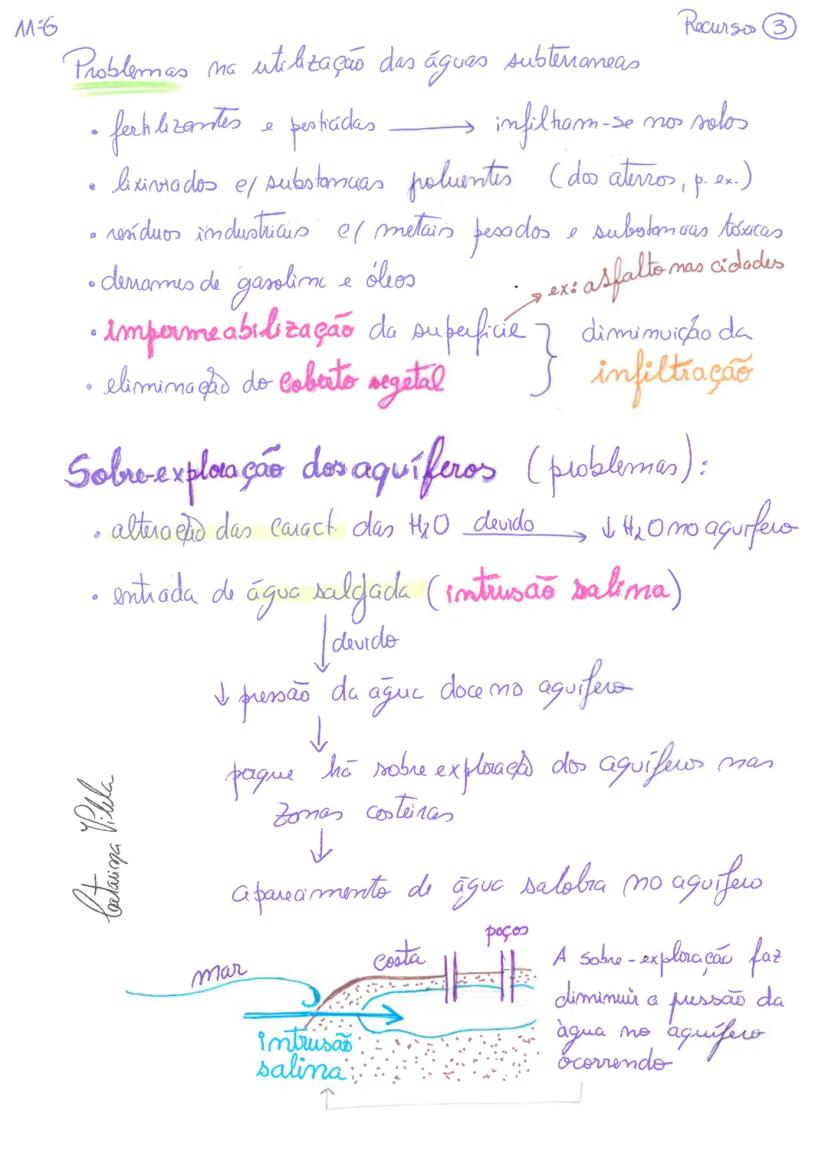 11-G
Recurso 3
Problemas na utilização das águas subterraneas
• fertilizantes e pesticidas → infiltram-se nos solos
• lixiviados c/ substancias poluentes (dos aterros, p. ex.)
• resíduos industriais c/ metais pesados e substancias tóxicas
• derrames de gasolina e óleos
ex: asfalto nas cidades
• impermeabilização da superfície } diminuição da
• eliminação do coberto vegetal infiltração
Sobre-exploração dos aquíferos (problemas):
• alteração das caract. das H2O devido → ↓ H2O no aquífero
• entrada de água salgada (intrusão salina)
↓ devido
↓ pressão da água doce no aquífero
↓
porque há sobre exploração dos aquíferos nas
zonas costeiras
↓
aparecimento de água salobra no aquífero
Catarina Vilela
mar
costa
poços
intrusão
salina
A sobre-exploração faz
diminuir a pressão da
água no aquífero
ocorrendo